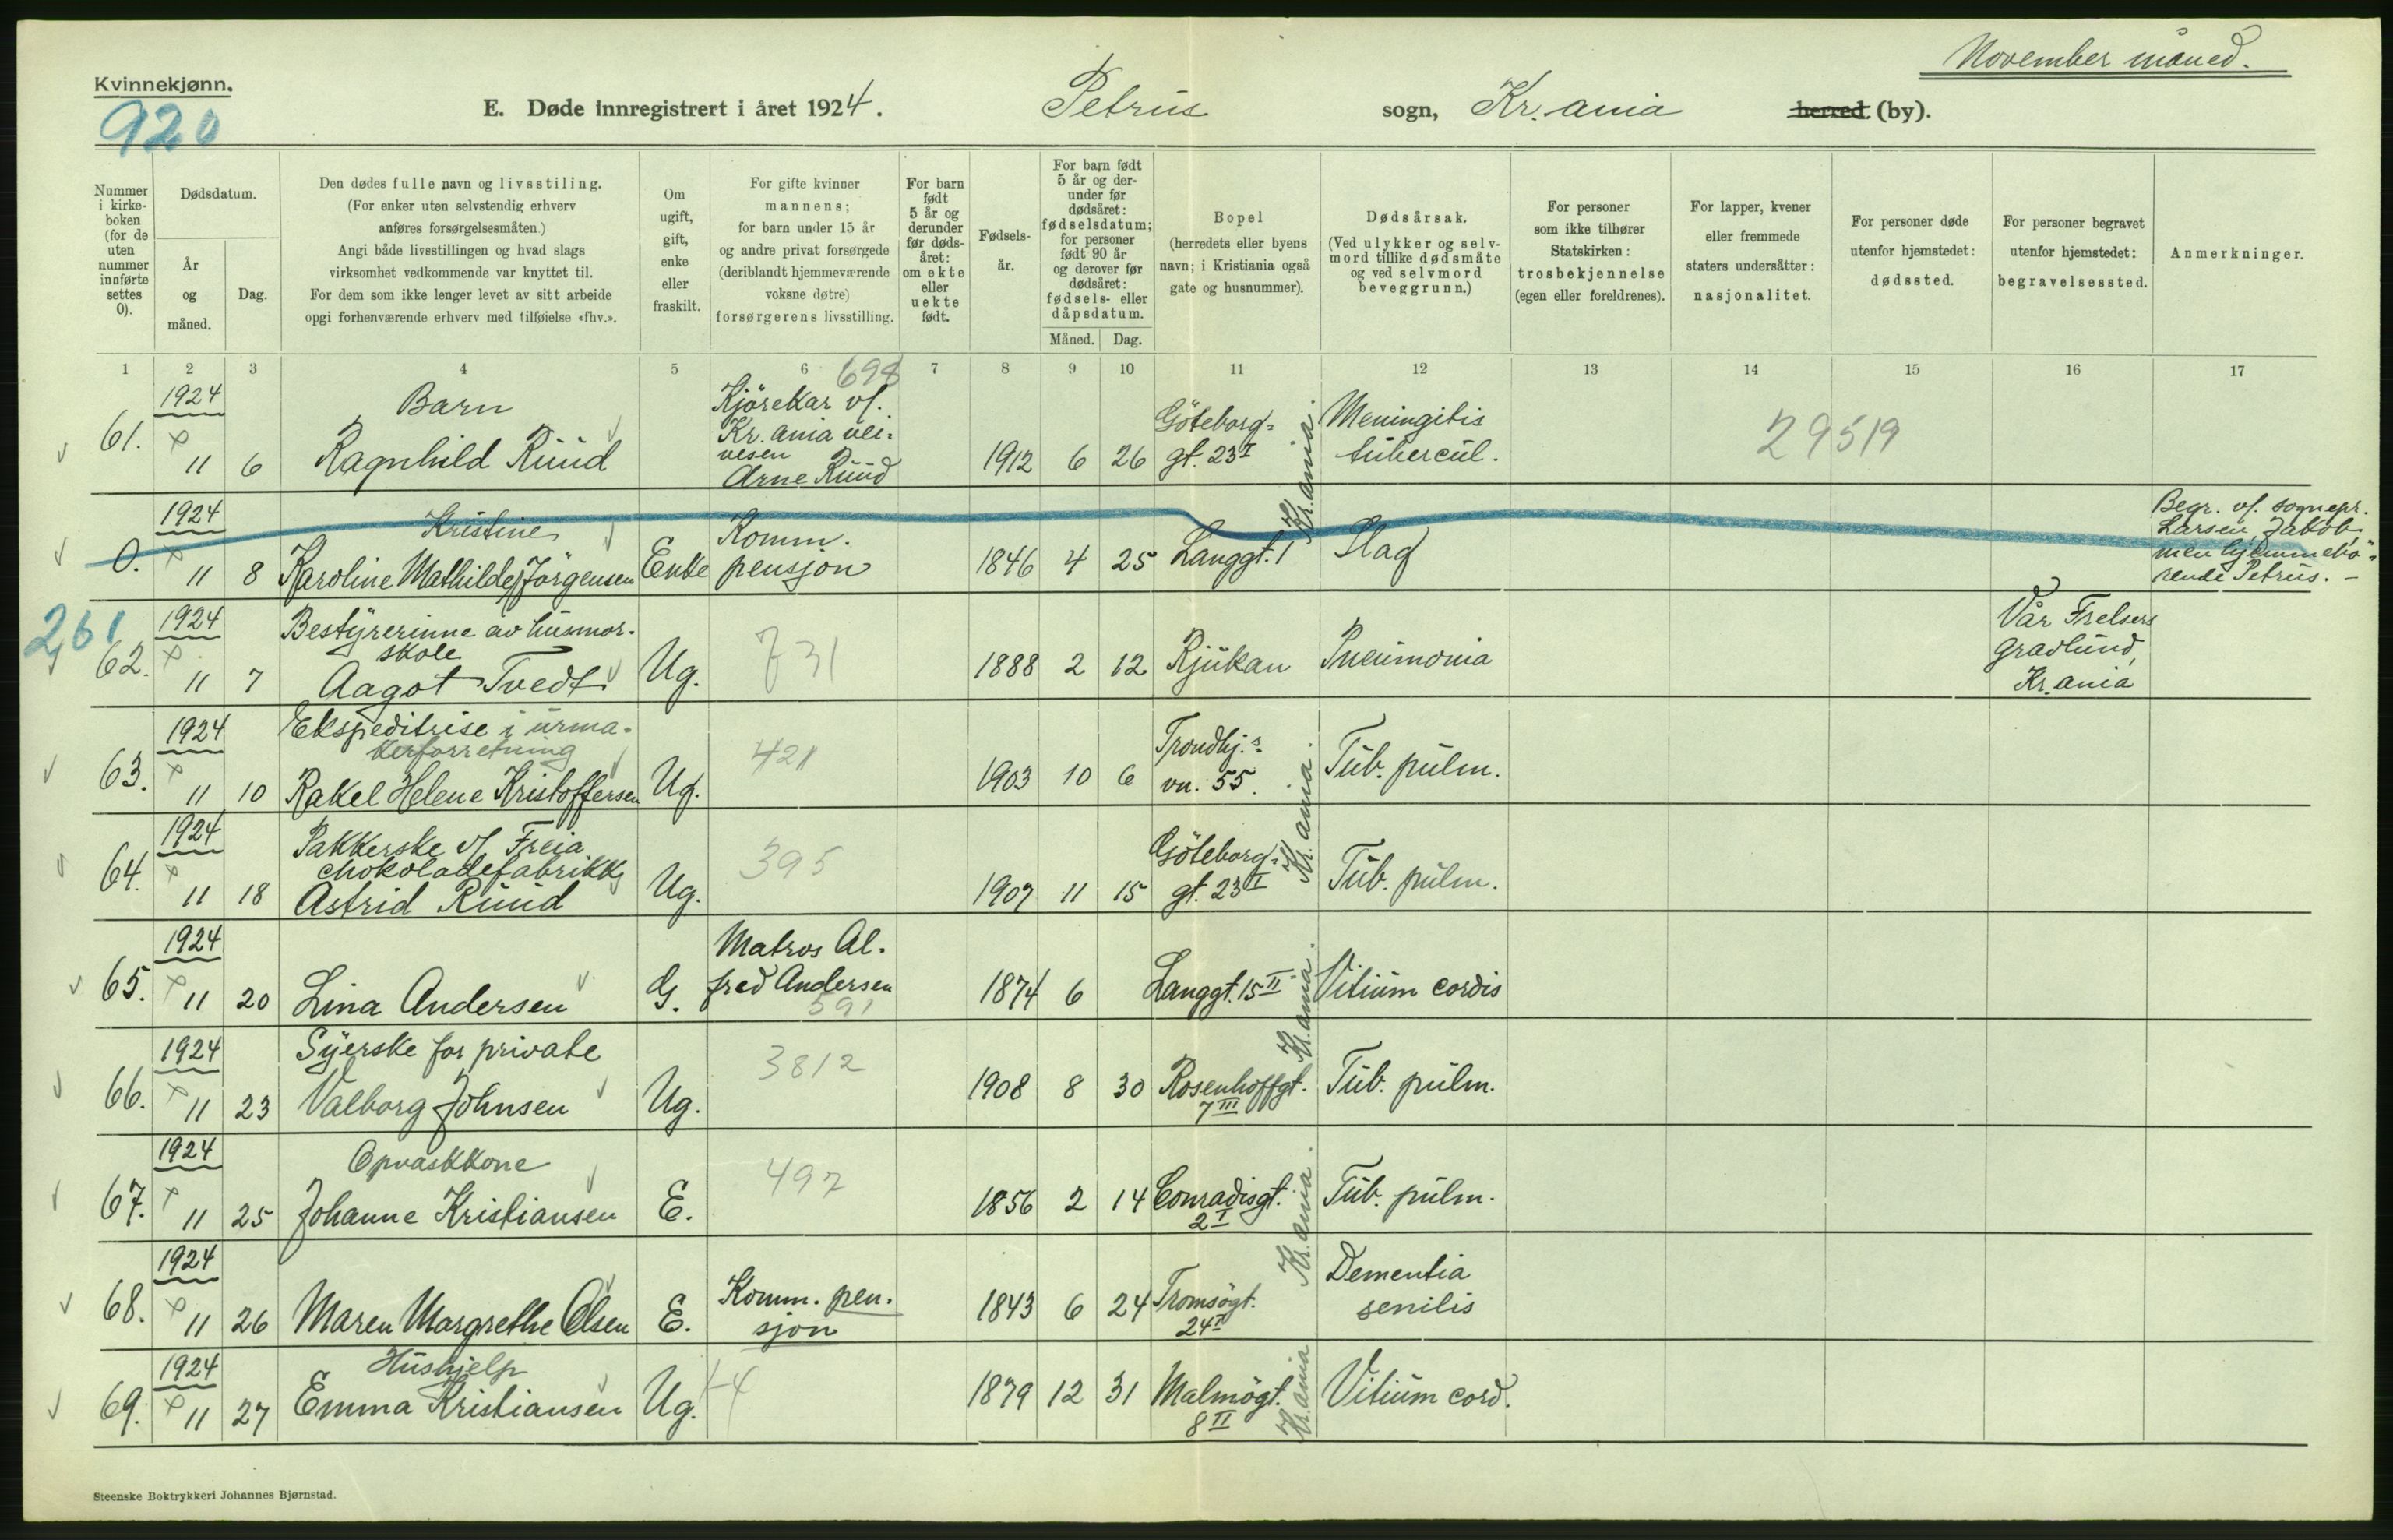 November måned.
Kvinnekjønn.
920
E. Døde innregistrert i året 1924. Petrus sogn, Kr.ania herred (by).
Nummer i kirke- boken (for de uten nummer innførte settes 0).
Dødsdatum.
År og måned.
Dag.
Den dødes fulle navn og livsstiling.
(For enker uten selvstendig erhverv
anføres forsørgelsesmåten.)
Angi både livsstillingen og hvad slags
virksomhet vedkommende var knyttet til.
For dem som ikke lenger levet av sitt arbeide
opgi forhenværende erhverv med tilføielse «fhv.».
Om ugift, gift, enke eller fraskilt.
For gifte kvinner
mannens;
for barn under 15 år
og andre privat forsørgede
(deriblandt hjemmeværende
voksne døtre)
forsørgerens livsstilling.
For barn født 5 år og derunder før døds- året: om ekte eller uekte født.
Fødsels- år.
For barn født 5 år og der- under før dødsåret: fødselsdatum; for personer født 90 år og derover før dødsåret: fødsels- eller dåpsdatum.
Måned. Dag.
Bopel
(herredets eller byens
navn; i Kristiania også
gate og husnummer).
Dødsårsak.
(Ved ulykker og selv-
mord tillike dødsmåte
og ved selvmord
beveggrunn.)
For personer
som ikke tilhører
Statskirken:
trosbekjennelse
(egen eller foreldrenes).
For lapper, kvener
eller fremmede
staters undersåtter:
nasjonalitet.
For personer døde
utenfor hjemstedet:
dødssted.
For personer begravet
utenfor hjemstedet:
begravelsessted.
Anmerkninger.
1 2 3 4 5 6 7 8 9 10 11 12 13 14 15 16 17
698
61. 1924 11 6 Barn
Ragnhild Ruud
Kjörekar v/.
Kr.ania vei-
vesen
Arne Ruud
1912 6 26 Göteborg-
gt. 23 I Kr.ania.
Meningitis
tubercul.
29519
0. 1924 11 8 Kristine
Karoline Mathilde Jörgensen
Enke
Komm.
pensjon
1846 4 25 Langgt. 1 Slag
Begr. v/. sognepr.
Larsen, Jakob,
men hjemmehö-
rende Petrus. –
261
62. 1924 11 7 Bestyrerinne av husmor-
skole
Aagot Tvedt
Ug. 731
1888 2 12 Rjukan Pneumonia
Vår Frelsers
gravlund,
Kr.ania
63. 1924 11 10 Ekspeditrise i urma-
kerforretning
Rakel Helene Kristoffersen
Ug. 421
1903 10 6 Trondhj.s
vn. 55. Kr.ania.
Tub. pulm.
64. 1924 11 18 Pakkerske v/ Freia
chokoladefabrikk
Astrid Ruud
Ug. 395
1907 11 15 Göteborg-
gt. 23 I
Tub. pulm.
65. 1924 11 20 Lina Andersen
G. Matros Al-
fred Andersen
591
1874 6 Langgt. 15 II Kr.ania.
Vitium cordis
66. 1924 11 23 Syerske for private
Valborg Johnsen
Ug. 3812
1908 8 30 Rosenhoffgt.
7 III
Tub. pulm.
67. 1924 11 25 Opvaskkone
Johanne Kristiansen
E. 497
1856 2 14 Conradisgt.
2 I Kr.ania.
Tub. pulm.
68. 1924 11 26 Maren Margrethe Olsen
E. Komm. pen-
sjon
1843 6 24 Tromsögt.
24 I
Dementia
senilis
69. 1924 11 27 Hushjelp
Emma Kristiansen
Ug.
1879 12 31 Malmögt.
8 II Kr.ania
Vitium cord.
Steenske Boktrykkeri Johannes Bjørnstad.